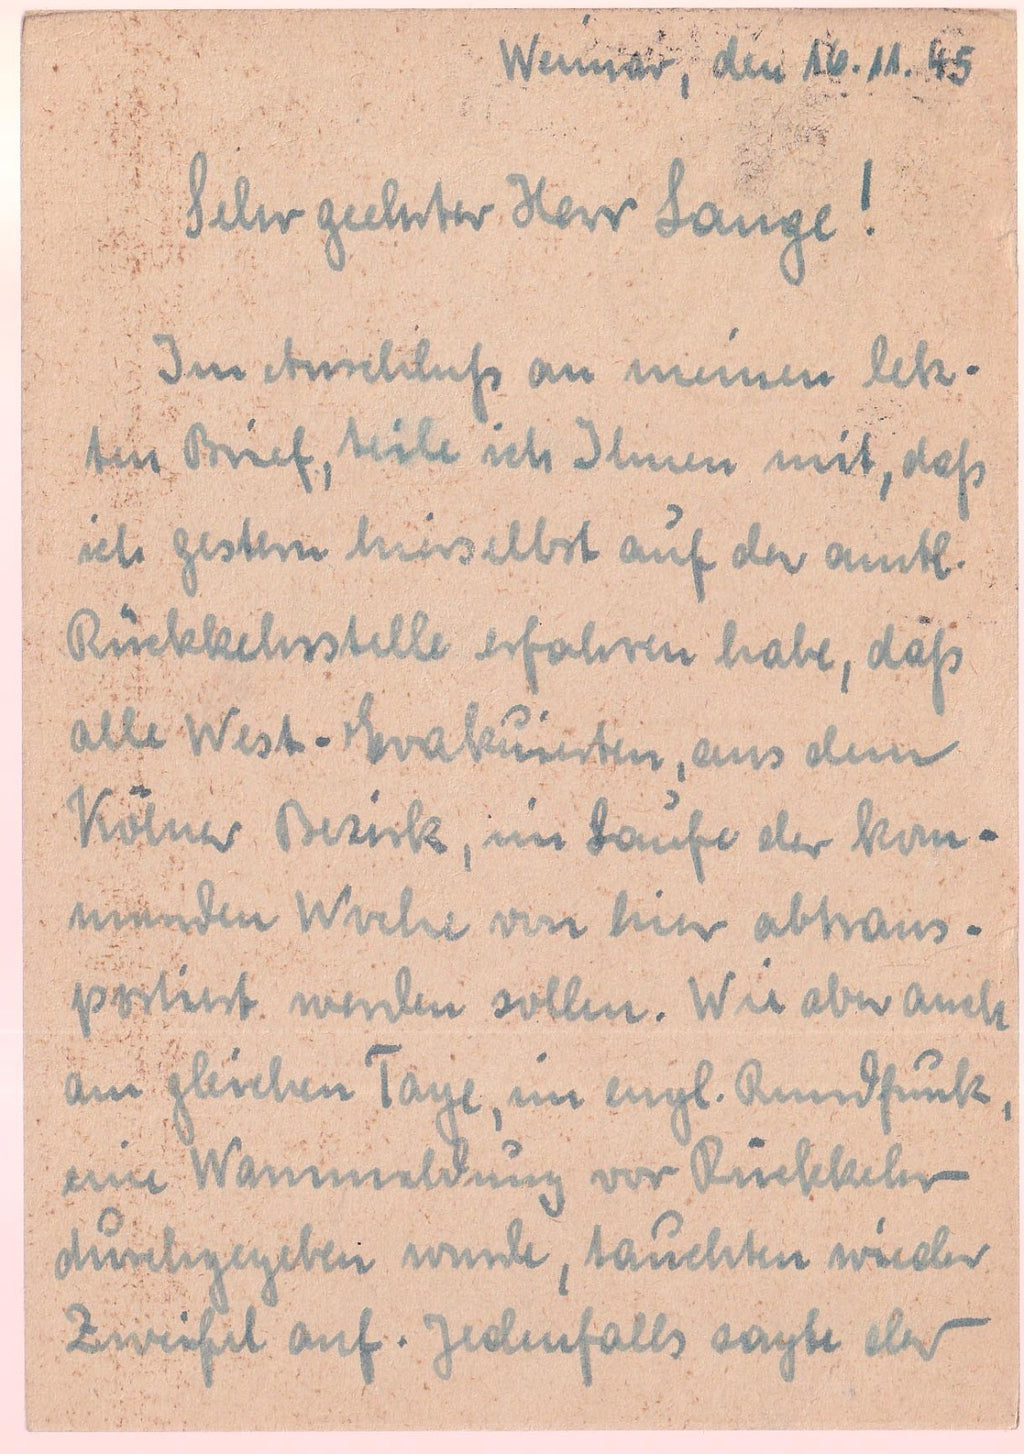 Weimar, den 16.11.45
Sehr geehrter Herr Lange!
Im Anschluß an meinen letz-
ten Brief, teile ich Ihnen mit, daß
ich gestern hierselbst auf der amtl.
Rückkehrstelle erfahren habe, daß
alle West-Evakuierten, aus dem
Kölner Bezirk, im Laufe der kom-
menden Woche von hier abtrans-
portiert werden sollen. Wie aber auch
am gleichen Tage, im engl. Rundfunk,
eine Warnmeldung vor Rückkehr
durchgegeben wurde, tauchten wieder
Zweifel auf. Jedenfalls sagte der